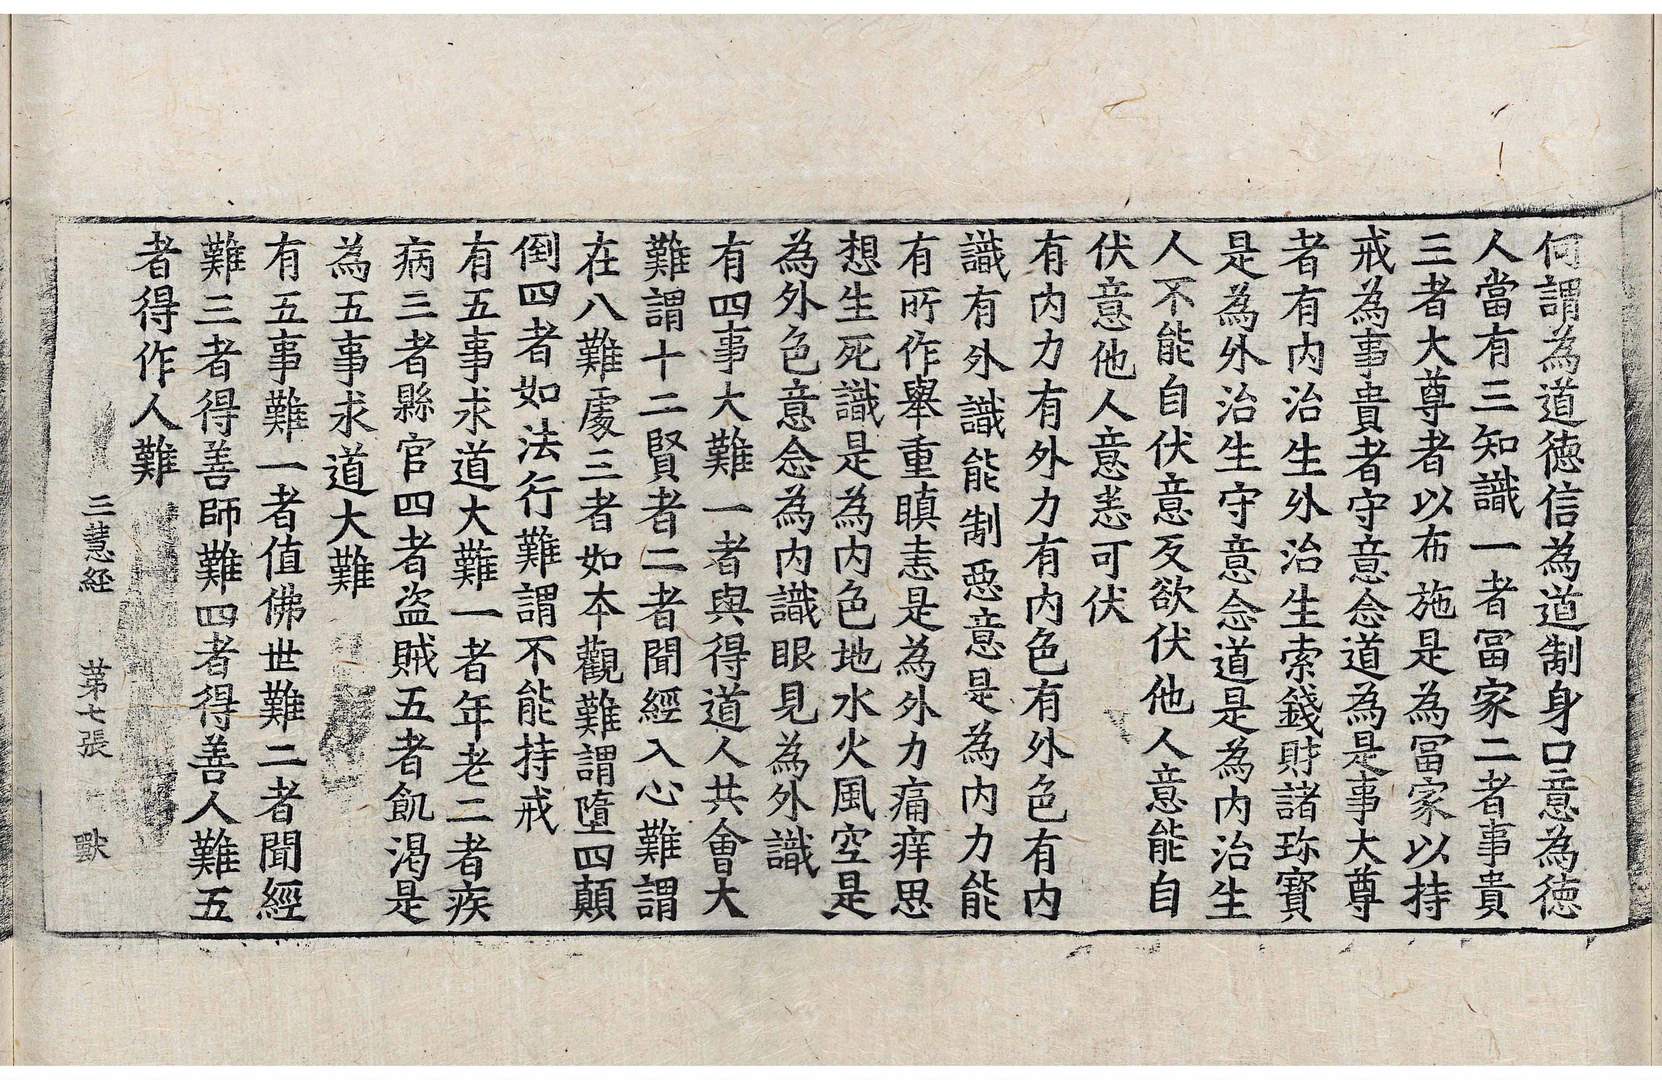 何謂為道德信為道制身口意為德
人當有三知識一者冨家二者事貴
三者大尊者以布施是為冨家以持
戒為事貴者守意念道為是事大尊
者有内治生外治生索錢財諸珎寳
是為外治生守意念道是為内治生
人不能自伏意反欲伏他人意能自
伏意他人意悉可伏
有内力有外力有内色有外色有内
識有外識能制惡意是為内力能
有所作舉重瞋恚是為外力痛痒思
想生死識是為内色地水火風空是
為外色意念為内識眼見為外識
有四事大難一者與得道人共會大
難謂十二賢者二者聞經入心難謂
在八難處三者如本觀難謂墮四顛
倒四者如法行難謂不能持戒
有五事求道大難一者年老二者疾
病三者縣官四者盜賊五者飢渴是
為五事求道大難
有五事難一者值佛世難二者聞經
難三者得善師難四者得善人難五
者得作人難
三慧經 第七張 獸